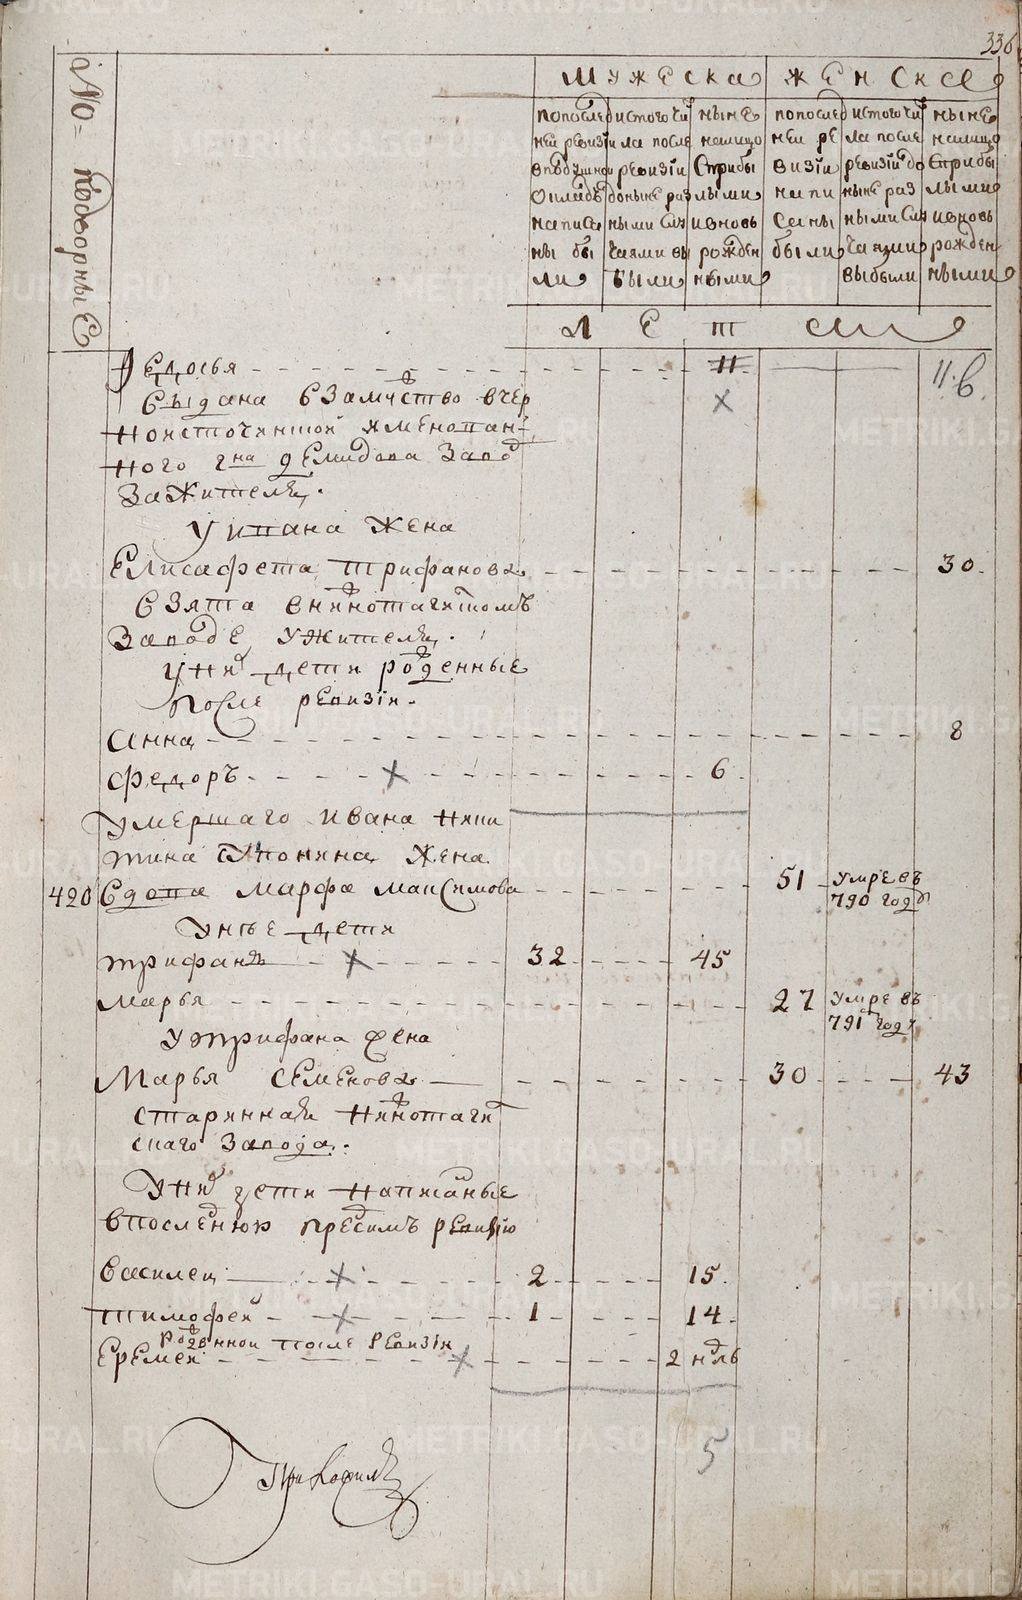 336
№ подворные
мужеска
женска
попослед
ней ревизи
вподушном
окладѣ
написа
ны бы
ли
истого чи
ла после
ревизіи
доныне раз
ными слу
чаями вы
были
ныне
налицо
сприбы
лыми
ивновь
рожден
ными
попослед
ней ре
визіи
напи
саны
были
истого чи
ла после
ревизіи до
ныне раз
ными слу
чаями
выбыли
ныне
налицо
сприбы
лыми
ивновь
рожден
ными
лет
Федосья 11. 11. в
Выдана взамужство вчер
ноисточинской именопан
ного гна демидова завод
зажителя.
У ипана жена
Елисафета трифанова 30.
взята внижнотагилскомъ
заводе ужителя.
Уних дети рожденные
после ревизіи.
Анна 8
Федоръ 6.
Умершаго ивана ники
тина жена
420 вдова марфа максимова 51 умре въ
790 годѣ
Унее дети
трифанъ 32 45
марья 27 умре въ
791 годѣ
Утрифана жена
Марья семенова 30 43
стариннаго нижнотагил
скаго завода.
Уних дети написанные
впоследнюю пред симъ ревизію
василеи 2 15.
тимофей 1 14.
рожденной после ревизіи
Еремеи 2 нлѣ
5